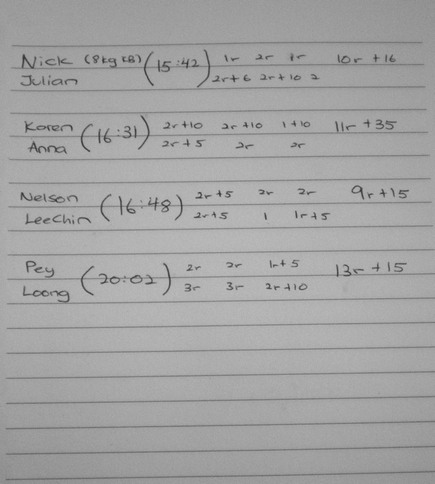 Nick (8kg KB) (15:42) 1r 2r 1r 10r +16
Julian 2r+6 2r+10 2
Karen (16:31) 2r+10 2r+10 1+10 11r +35
Anna 2r+5 2r 2r
Nelson (16:48) 2r+5 2r 2r 9r+15
LeeChin 2r+5 1 1r+5
Pey (20:02) 2r 2r 1r+5 13r +15
Loong 3r 3r 2r+10